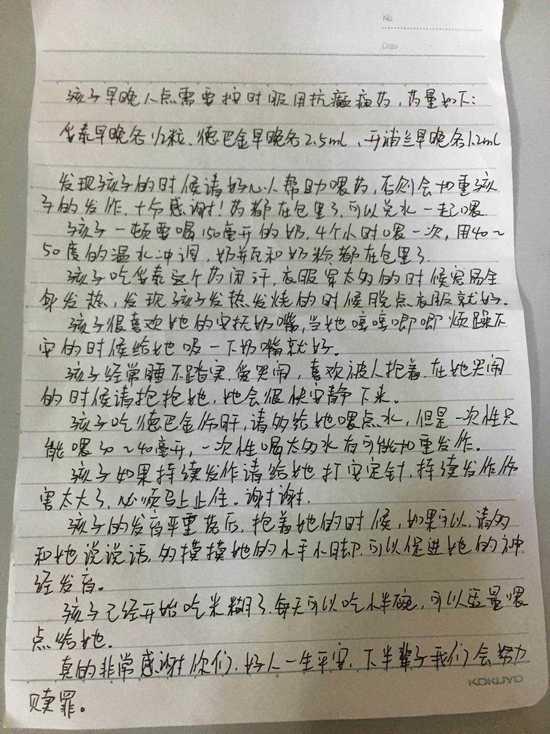 No.
Date
孩子早晚八点需要按时服用抗癫痫药,药量如下:
妥泰早晚各1/2粒、德巴金早晚各2.5ml,开浦兰早晚各1.2ml
发现孩子的时候请好心人帮助喂药,否则会加重孩
子的发作,十分感谢!药都在包里了,可以兑水一起喂
孩子一顿需要喝150毫升的奶,4个小时喂一次,用40~
50度的温水冲调,奶瓶和奶粉都在包里了
孩子吃妥泰这个药闭汗,衣服穿太多的时候容易全
身发热,发现孩子发热发烧的时候脱点衣服就好。
孩子很喜欢她的安抚奶嘴,当她哼哼唧唧烦躁不
安的时候给她吸一下奶嘴就好。
孩子经常睡不踏实,爱哭闹,喜欢被人抱着,在她哭闹
的时候请抱抱她,她会很快安静下来。
孩子吃德巴金伤肝,请多给她喂点水,但是一次性只
能喂30~40毫升,一次性喝太多水有可能加重发作。
孩子如果持续发作请给她打安定针,持续发作伤
害太大了,必须马上止住。谢谢谢。
孩子的发育严重落后,抱着她的时候,如果可以,请多
和她说说话,多摸摸她的小手小脚,可以促进她的神
经发育。
孩子已经开始吃米糊了,每天可以吃小半碗,可以适量喂
点给她。
真的非常感谢你们,好人一生平安,下半辈子我们会努力
赎罪。
KOKUYO